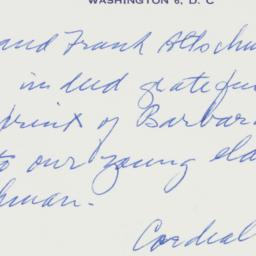 WASHINGTON 6, D. C
and Frank Altschu
indeed gratefu
print of Barbar
to our young eld
hman.
Cordial